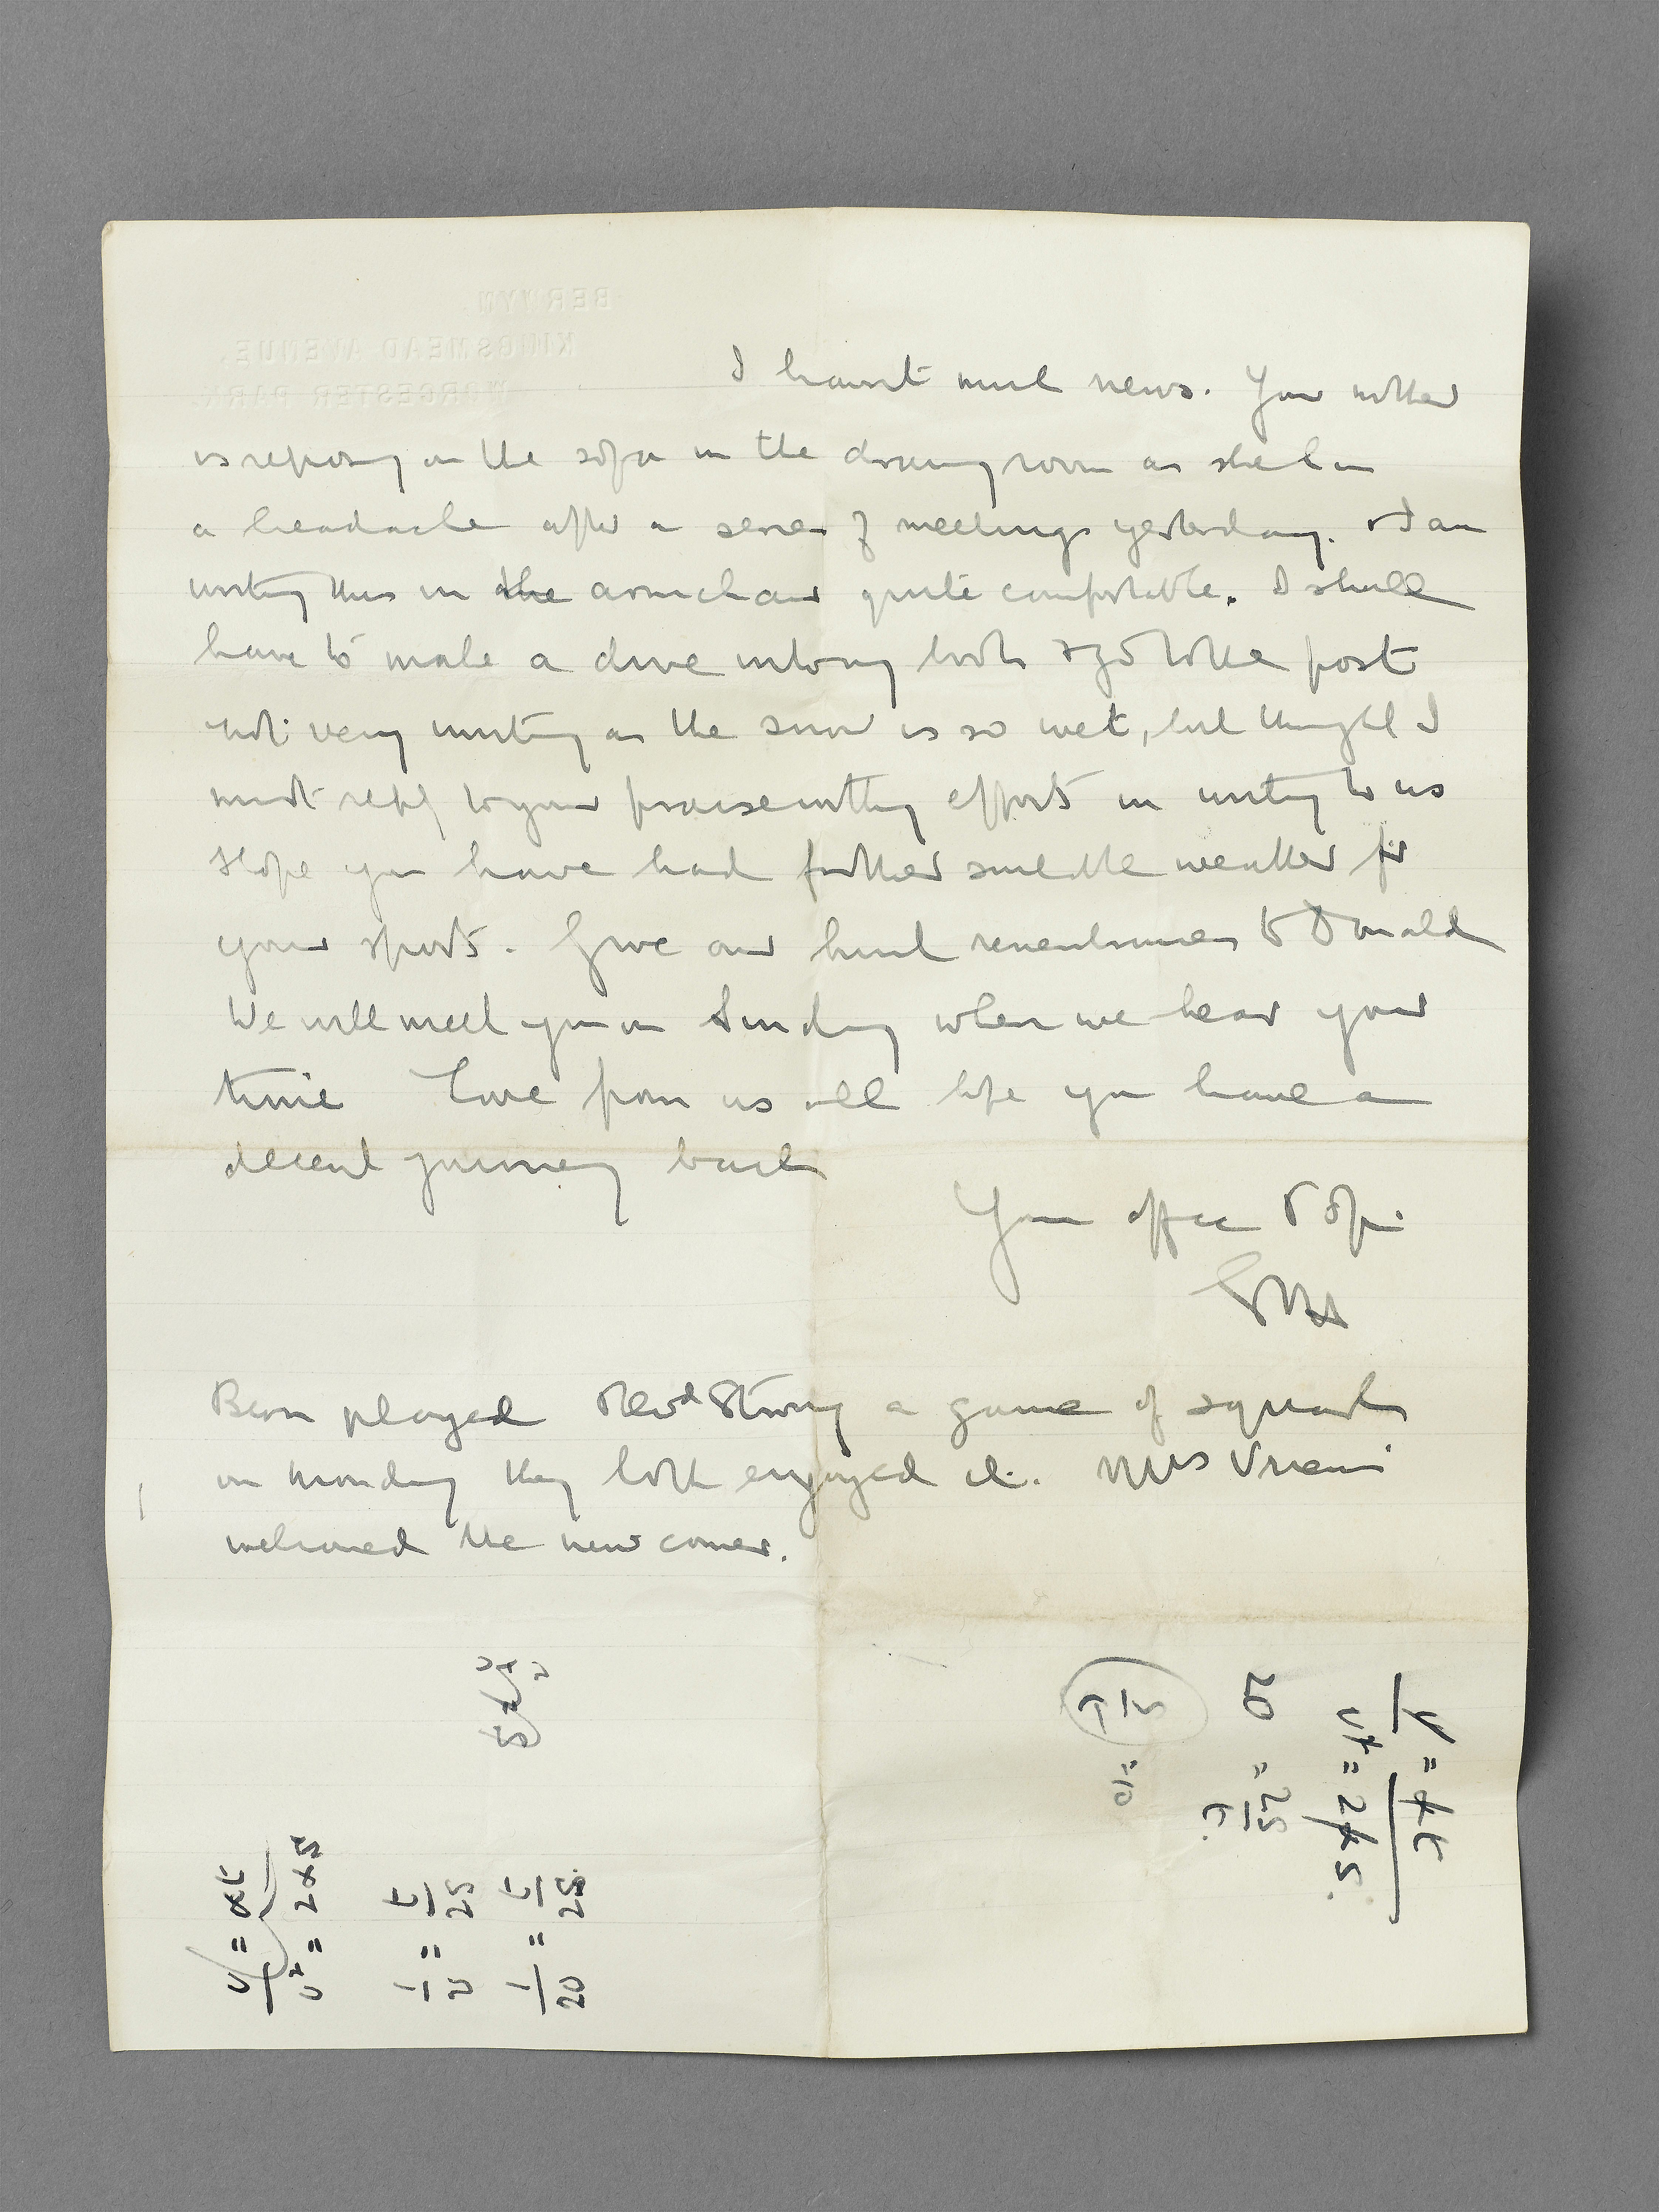 BERWYN.
KINGSMEAD AVENUE,
WORCESTER PARK.
I havnt much news. Your mother
is reposing on the sofa in the drawing room as she has
a headache after a series of meetings yesterday. & I am
writing this in the armchair quite comfortable. I shall
have to make a dive into my boots & go to the post
not very inviting as the snow is so wet, but thought I
must reply to your praiseworthy efforts in writing to us
Hope you have had further suitable weather for
your sports. Give our kind remembrances to Donald
We will meet you on Sunday when we hear your
time Love from us all hope you have a
decent journey back
Your affec
played Revd Strong a game of squash
on Monday they both enjoyed it. Miss
welcomed the new comer.
v = at
v² = 2 x 5
1/v = t/25
1/20 = t/25
v = at
v² = 2 x 5
20 = 25/t
= 10